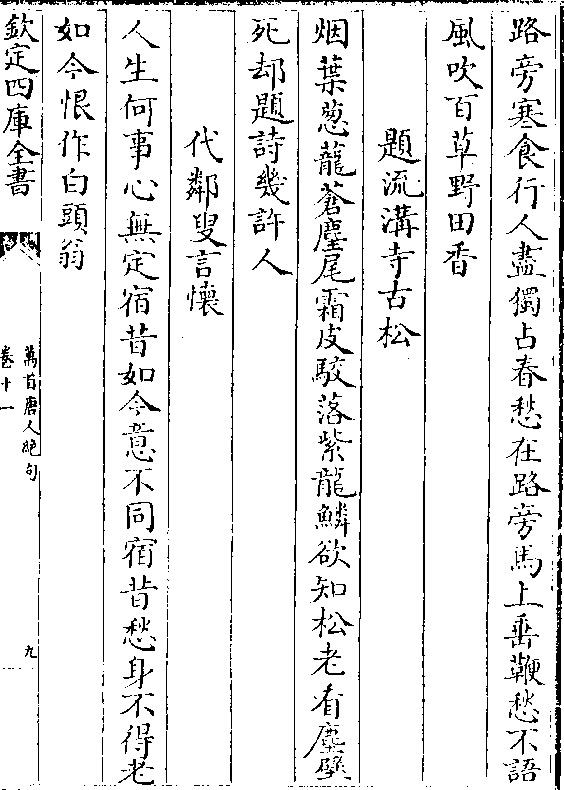 路旁寒食行人盡獨占春愁在路旁馬上垂鞭愁不語
風吹百草野田香
題流溝寺古松
烟葉葱蘢蒼麈尾霜皮駮落紫龍鱗欲知松老看塵壁
死却題詩幾許人
代鄰叟言懷
人生何事心無定宿昔如今意不同宿昔愁身不得老
如今恨作白頭翁
欽定四庫全書
萬首唐人絕句
卷十一
九